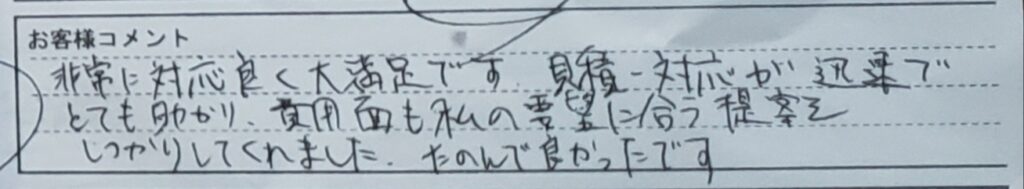 お客様コメント
非常に対応良く大満足です。見積・対応が迅速で
とても助かり、費用面も私の要望に合う提案を
しっかりしてくれました。たのんで良かったです